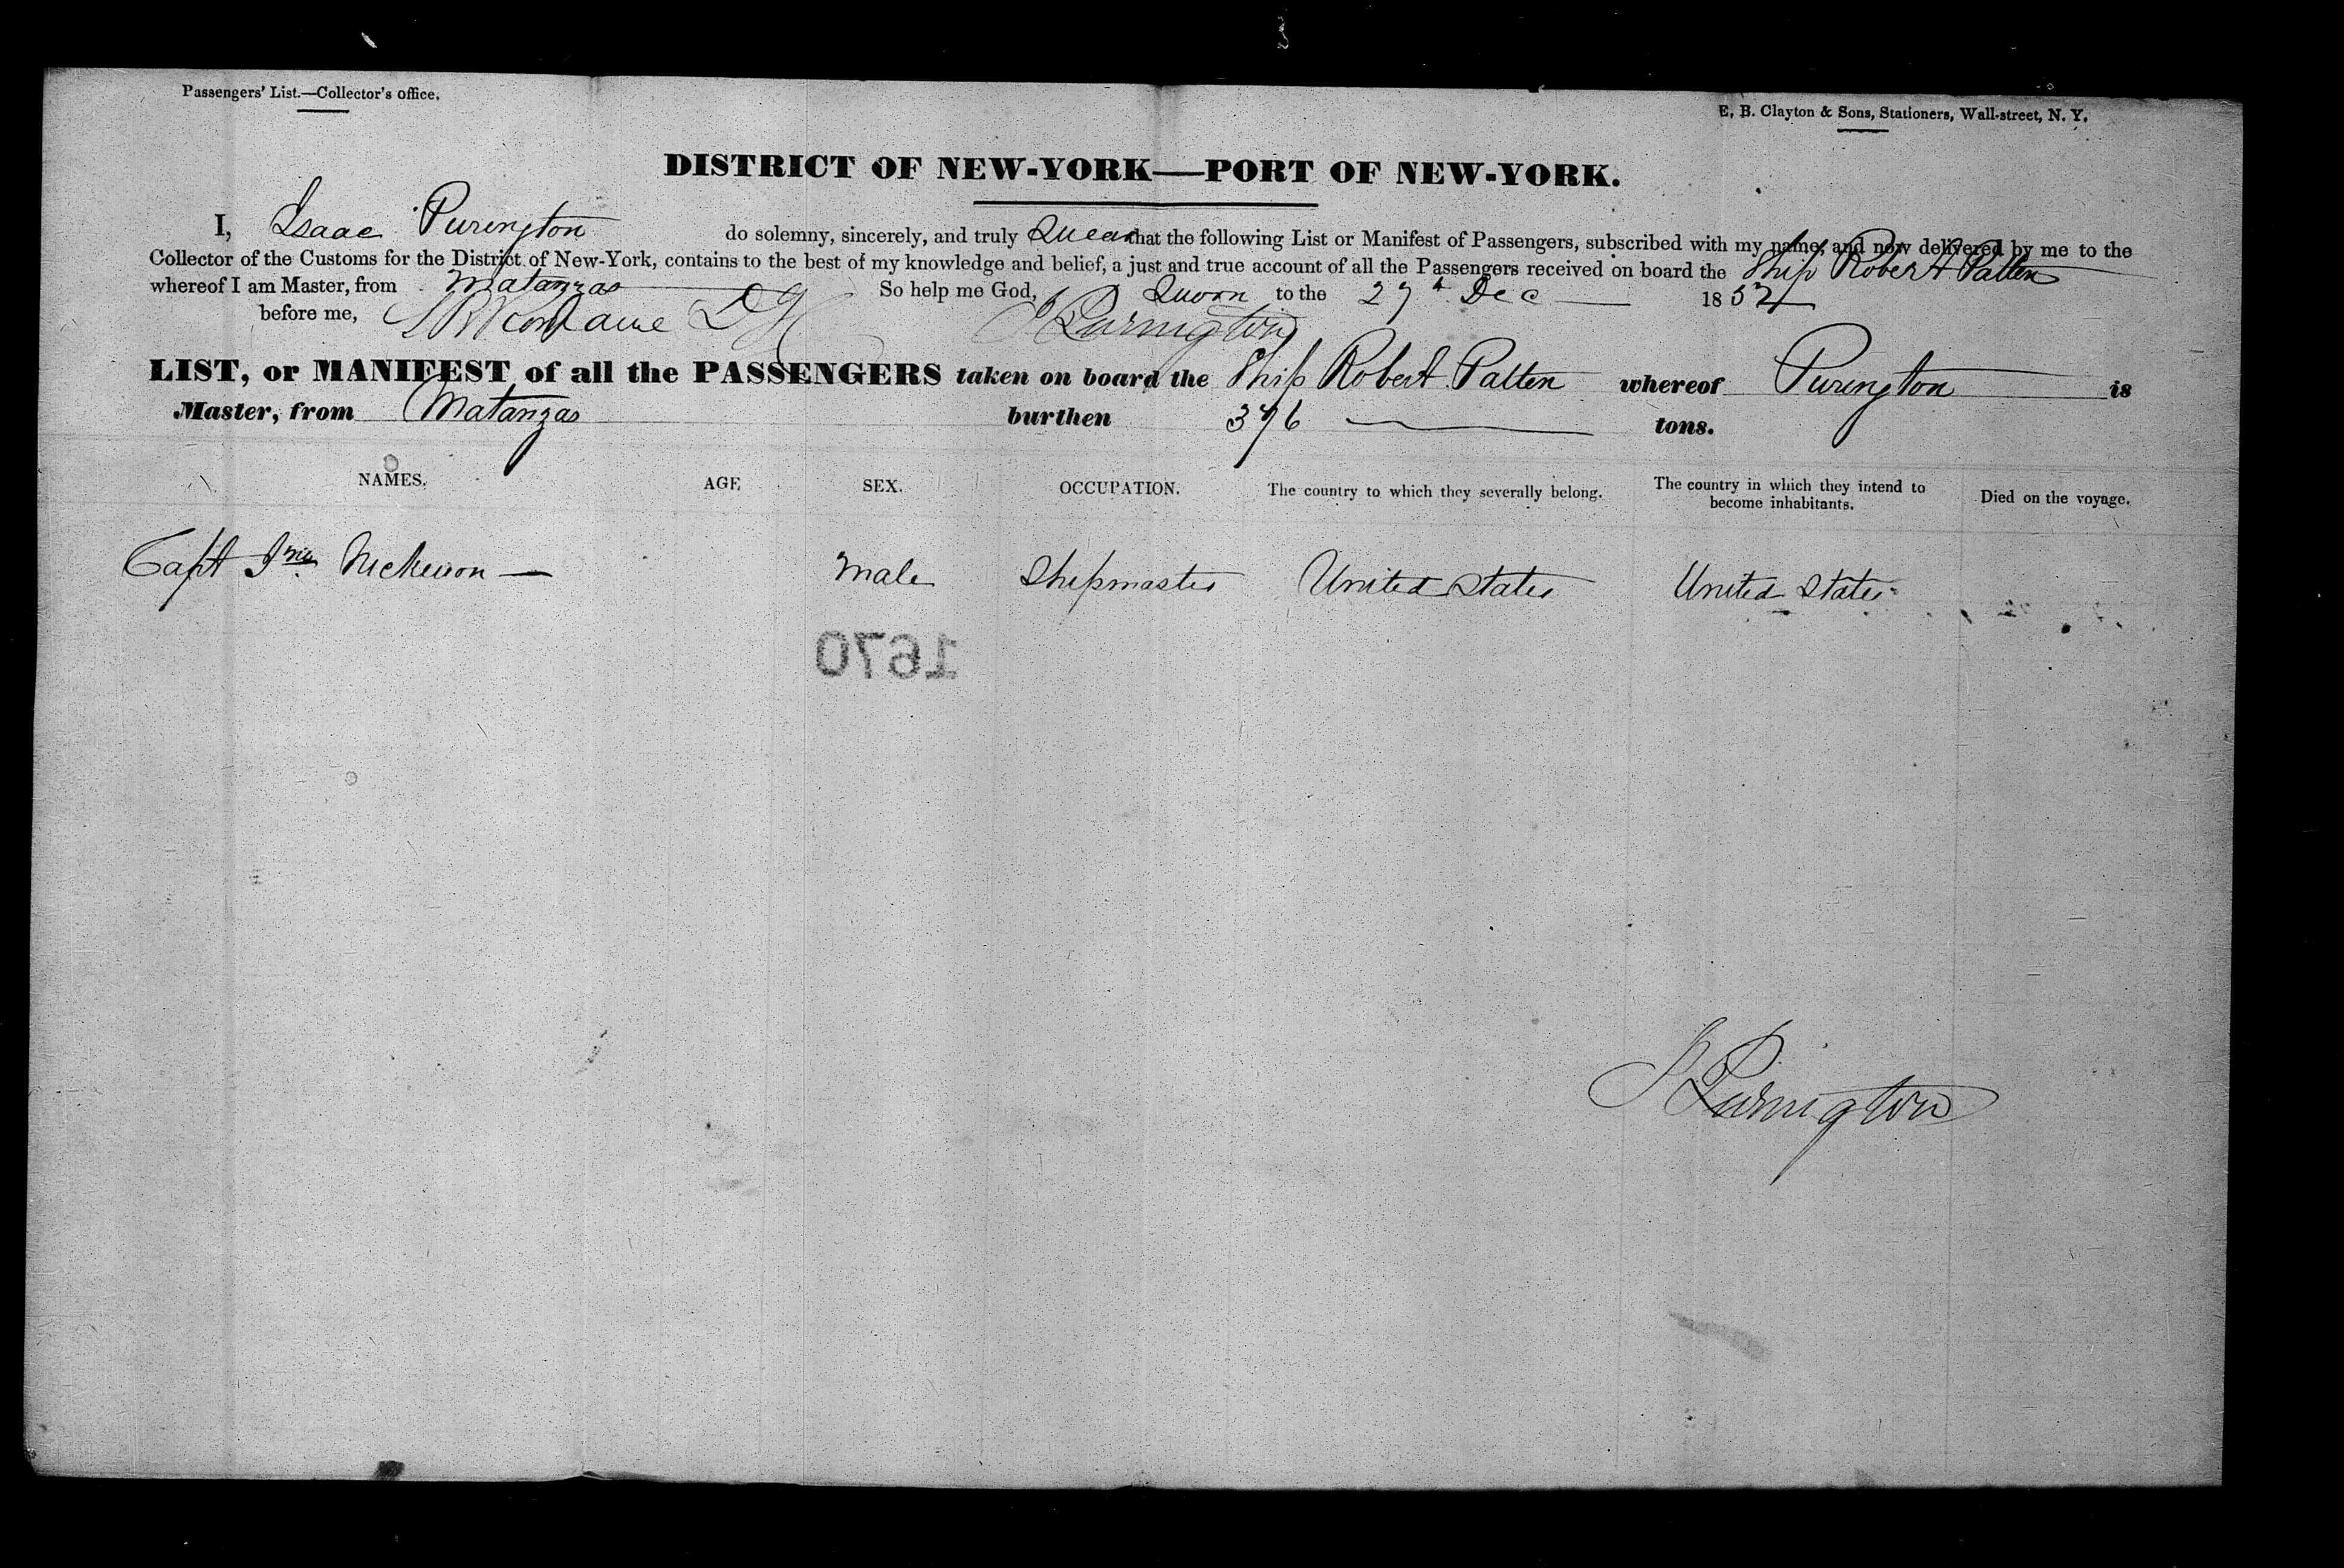 Passengers' List.—Collector's office.
E. B. Clayton & Sons, Stationers, Wall-street, N. Y.
DISTRICT OF NEW-YORK—PORT OF NEW-YORK.
I, Isaac Purington do solemny, sincerely, and truly Swear that the following List or Manifest of Passengers, subscribed with my name, and now delivered by me to the
Collector of the Customs for the District of New-York, contains to the best of my knowledge and belief, a just and true account of all the Passengers received on board the Ship Robert Patten
whereof I am Master, from Matanzas So help me God, Sworn to the 27th Dec 1852
before me, I Purington
LIST, or MANIFEST, of all the PASSENGERS taken on board the Ship Robert Patten whereof Purington is
Master, from Matanzas burthen 376 tons.
NAMES. AGE SEX. OCCUPATION. The country to which they severally belong. The country in which they intend to become inhabitants. Died on the voyage.
Capt Jno. Nickerson — Male Shipmaster United States United States
1670
I Purington